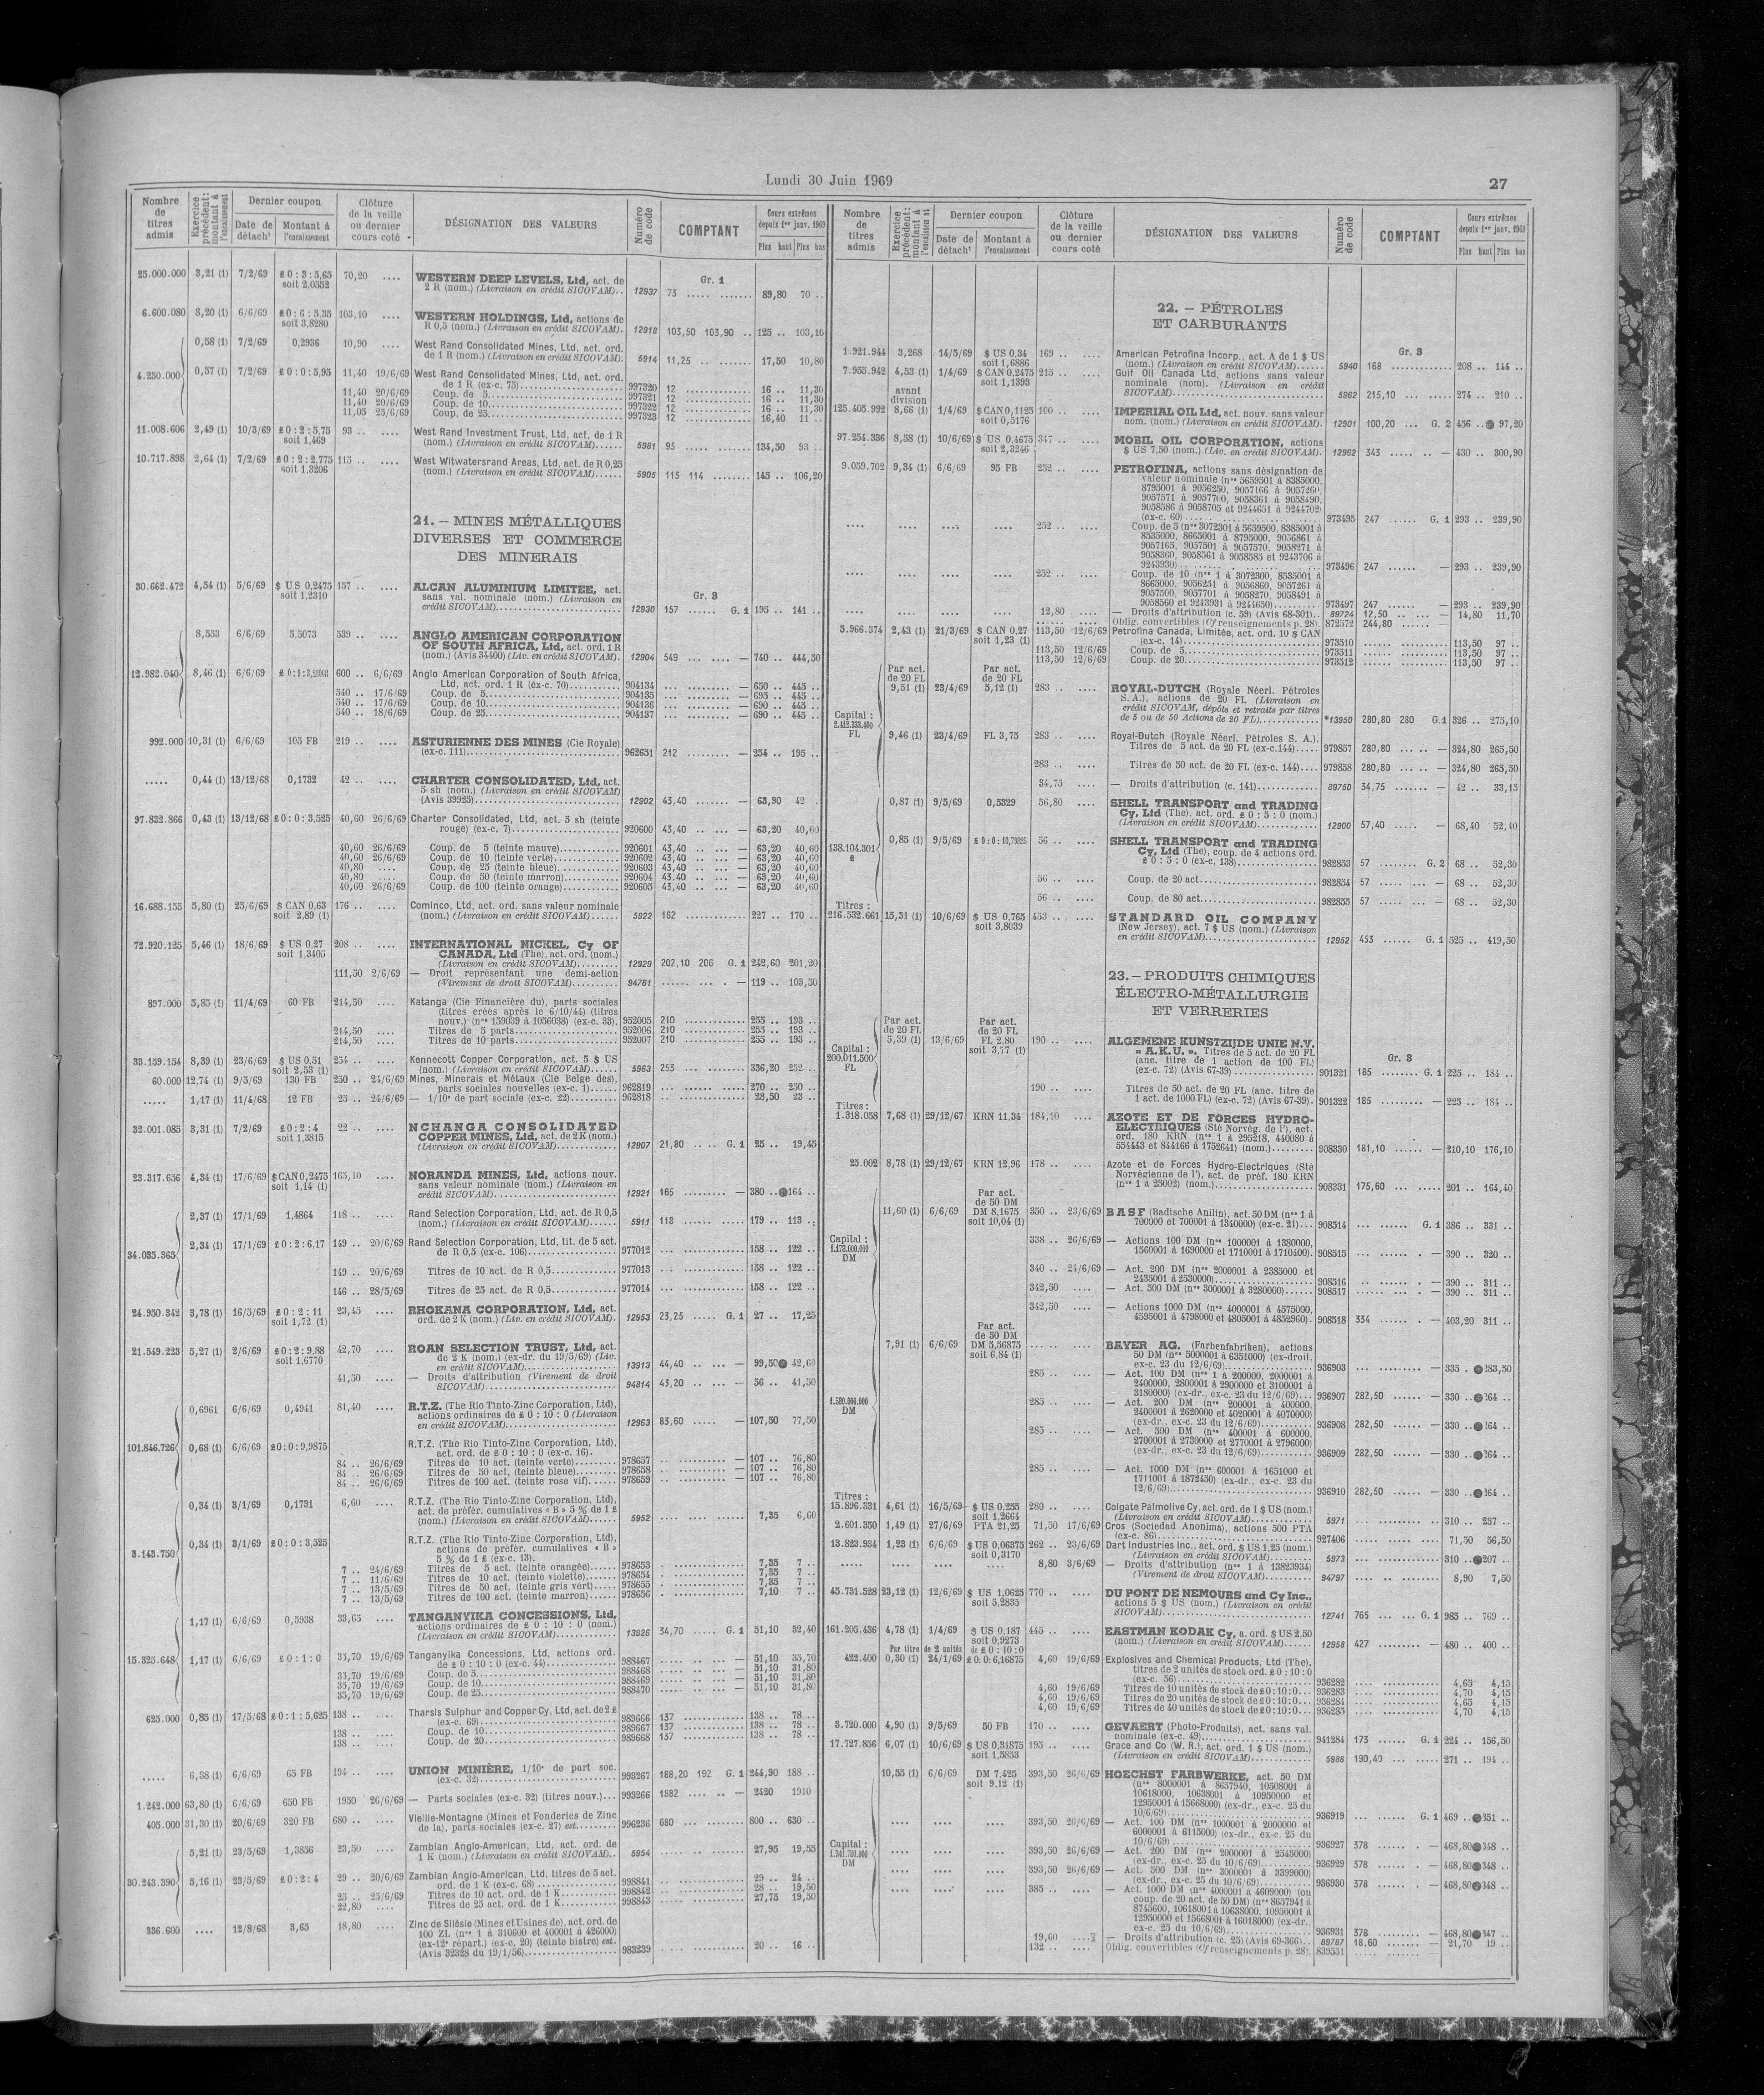 Lundi 30 Juin 1969
27
Nombre de titres admis
Exercice précédent: montant à l'encaissement
Dernier coupon
Date de détach¹
Montant à l'encaissement
Clôture de la veille ou dernier cours coté
DÉSIGNATION DES VALEURS
Numéro de code
COMPTANT
Cours extrêmes depuis 1er janv. 1969
Plus haut
Plus bas
Gr. 1
25.000.000 3,21 (1) 7/2/69 £ 0 : 3 : 5,65 70,20 .... WESTERN DEEP LEVELS, Ltd, act. de
soit 2,0552 2 R (nom.) (Livraison en crédit SICOVAM).. 12937 73 ..... ....... 89,80 70 ..
6.600.080 8,20 (1) 6/6/69 £ 0 : 6 : 5,35 103,10 .... WESTERN HOLDINGS, Ltd, actions de
soit 3,8280 R 0,5 (nom.) (Livraison en crédit SICOVAM). 12918 103,50 103,90 .. 125 .. 103,10
0,58 (1) 7/2/69 0,2936 10,90 .... West Rand Consolidated Mines, Ltd, act. ord.
de 1 R (nom.) (Livraison en crédit SICOVAM). 5914 11,25 .. ....... 17,50 10,80
4.250.000 0,57 (1) 7/2/69 £ 0 : 0 : 5,95 11,40 19/6/69 West Rand Consolidated Mines, Ltd, act. ord.
de 1 R (ex-c. 75) 997320 12 16 .. 11,30
11,40 20/6/69 Coup. de 5 997321 12 16 .. 11,30
11,40 20/6/69 Coup. de 10 997322 12 16 .. 11,30
11,05 25/6/69 Coup. de 25 997323 12 16,40 11 ..
11.008.606 2,49 (1) 10/3/69 £ 0 : 2 : 5,75 93 .. .... West Rand Investment Trust, Ltd, act. de 1 R
soit 1,469 (nom.) (Livraison en crédit SICOVAM) 5981 95 134,50 93 ..
10.717.898 2,64 (1) 7/2/69 £ 0 : 2 : 2,775 115 .. .... West Witwatersrand Areas, Ltd, act. de R 0,25
soit 1,3206 (nom.) (Livraison en crédit SICOVAM) 5905 115 114 145 .. 106,20
21. – MINES MÉTALLIQUES
DIVERSES ET COMMERCE
DES MINERAIS
Gr. 3
30.662.472 4,54 (1) 5/6/69 $ US 0,2475 157 .. .... ALCAN ALUMINIUM LIMITEE, act.
soit 1,2310 sans val. nominale (nom.) (Livraison en
crédit SICOVAM) 12930 157 G. 1 195 .. 141 ..
8,553 6/6/69 5,5073 539 .. .... ANGLO AMERICAN CORPORATION
OF SOUTH AFRICA, Ltd, act. ord. 1 R
(nom.) (Avis 34400) (Liv. en crédit SICOVAM). 12904 549 — 740 .. 444,50
12.982.040 8,46 (1) 6/6/69 600 .. 6/6/69 Anglo American Corporation of South Africa,
Ltd, act. ord. 1 R (ex-c. 70) 904134 — 650 .. 445 ..
540 .. 17/6/69 Coup. de 5 904135 — 695 .. 445 ..
540 .. 17/6/69 Coup. de 10 904136 — 690 .. 445 ..
540 .. 18/6/69 Coup. de 25 904137 — 690 .. 445 ..
992.000 10,31 (1) 6/6/69 105 FB 219 .. .... ASTURIENNE DES MINES (Cie Royale)
(ex-c. 111) 962651 212 — 254 .. 195 ..
..... 0,44 (1) 13/12/68 0,1732 42 .. .... CHARTER CONSOLIDATED, Ltd, act.
5 sh (nom.) (Livraison en crédit SICOVAM)
(Avis 39925) 12902 43,40 — 63,90 42 ..
97.832.866 0,43 (1) 13/12/68 £ 0 : 0 : 3,525 40,60 26/6/69 Charter Consolidated, Ltd, act. 5 sh (teinte
rouge) (ex-c. 7) 920600 43,40 — 63,20 40,60
40,60 26/6/69 Coup. de 5 (teinte mauve) 920601 43,40 — 63,20 40,60
40,60 26/6/69 Coup. de 10 (teinte verte) 920602 43,40 — 63,20 40,60
40,80 .... Coup. de 25 (teinte bleue) 920603 43,40 — 63,20 40,60
40,80 .... Coup. de 50 (teinte marron) 920604 43,40 — 63,20 40,60
40,60 26/6/69 Coup. de 100 (teinte orange) 920605 43,40 — 63,20 40,60
16.688.155 5,80 (1) 25/6/69 $ CAN 0,63 176 .. .... Cominco, Ltd, act. ord. sans valeur nominale
soit 2,89 (1) (nom.) (Livraison en crédit SICOVAM) 5922 162 227 .. 170 ..
72.920.125 5,46 (1) 18/6/69 $ US 0,27 208 .. .... INTERNATIONAL NICKEL, Cy OF
soit 1,3405 CANADA, Ltd (The), act. ord. (nom.)
(Livraison en crédit SICOVAM) 12929 202,10 206 G. 1 242,60 201,20
111,50 2/6/69 — Droit représentant une demi-action
(Virement de droit SICOVAM) 94761 — 119 .. 103,50
897.000 5,85 (1) 11/4/69 60 FB 214,50 .... Katanga (Cie Financière du), parts sociales
(titres créés après le 6/10/44) (titres
nouv.) (nos 159039 à 1056038) (ex-c. 33). 932005 210 255 .. 193 ..
214,50 .... Titres de 5 parts 932006 210 255 .. 193 ..
214,50 .... Titres de 10 parts 932007 210 255 .. 193 ..
33.159.154 8,39 (1) 23/6/69 $ US 0,51 254 .. .... Kennecott Copper Corporation, act. 5 $ US
soit 2,53 (1) (nom.) (Livraison en crédit SICOVAM) 5963 253 336,20 252 ..
60.000 12,74 (1) 9/5/69 130 FB 250 .. 24/6/69 Mines, Minerais et Métaux (Cie Belge des),
parts sociales nouvelles (ex-c. 1) 962819 270 .. 250 ..
..... 1,17 (1) 11/4/68 12 FB 25 .. 24/6/69 — 1/10e de part sociale (ex-c. 22) 962818 28,50 23 ..
32.001.085 3,31 (1) 7/2/69 £ 0 : 2 : 4 22 .. .... NCHANGA CONSOLIDATED
soit 1,3815 COPPER MINES, Ltd, act. de 2 K (nom.)
(Livraison en crédit SICOVAM) 12907 21,80 G. 1 25 .. 19,45
23.317.656 4,34 (1) 17/6/69 $ CAN 0,2475 165,10 .... NORANDA MINES, Ltd, actions nouv.
soit 1,14 (1) sans valeur nominale (nom.) (Livraison en
crédit SICOVAM) 12921 165 — 380 .. ●164 ..
2,37 (1) 17/1/69 1,4864 118 .. .... Rand Selection Corporation, Ltd, act. de R 0,5
(nom.) (Livraison en crédit SICOVAM) 5911 118 179 .. 113 ..
34.035.365 2,34 (1) 17/1/69 £ 0 : 2 : 6,17 149 .. 20/6/69 Rand Selection Corporation, Ltd, tit. de 5 act.
de R 0,5 (ex-c. 106) 977012 158 .. 122 ..
149 .. 20/6/69 Titres de 10 act. de R 0,5 977013 158 .. 122 ..
146 .. 28/5/69 Titres de 25 act. de R 0,5 977014 158 .. 122 ..
24.950.342 3,78 (1) 16/5/69 £ 0 : 2 : 11 23,45 .... RHOKANA CORPORATION, Ltd, act.
soit 1,72 (1) ord. de 2 K (nom.) (Liv. en crédit SICOVAM). 12953 23,25 G. 1 27 .. 17,25
21.549.223 5,27 (1) 2/6/69 £ 0 : 2 : 9,88 42,70 .... ROAN SELECTION TRUST, Ltd, act.
soit 1,6770 de 2 K (nom.) (ex-dr. du 19/5/69) (Liv.
en crédit SICOVAM) 13913 44,40 — 99,50 ● 42,60
41,50 .... — Droits d'attribution (Virement de droit
SICOVAM) 94814 43,20 — 56 .. 41,50
0,6961 6/6/69 0,4941 81,40 .... R.T.Z. (The Rio Tinto-Zinc Corporation, Ltd),
actions ordinaires de £ 0 : 10 : 0 (Livraison
en crédit SICOVAM) 12963 83,60 — 107,50 77,50
101.846.726 0,68 (1) 6/6/69 £ 0 : 0 : 9,9875 R.T.Z. (The Rio Tinto-Zinc Corporation, Ltd),
act. ord. de £ 0 : 10 : 0 (ex-c. 16).
84 .. 26/6/69 Titres de 10 act. (teinte verte) 978657 — 107 .. 76,80
84 .. 26/6/69 Titres de 50 act. (teinte bleue) 978658 — 107 .. 76,80
84 .. 26/6/69 Titres de 100 act. (teinte rose vif) 978659 — 107 .. 76,80
0,34 (1) 3/1/69 0,1731 6,60 .... R.T.Z. (The Rio Tinto-Zinc Corporation, Ltd),
act. de préfér. cumulatives « B » 5 % de 1 £
(nom.) (Livraison en crédit SICOVAM) 5952 7,35 6,60
3.143.750 0,34 (1) 3/1/69 £ 0 : 0 : 3,525 R.T.Z. (The Rio Tinto-Zinc Corporation, Ltd),
actions de préfér. cumulatives « B »
5 % de 1 £ (ex-c. 13).
7 .. 24/6/69 Titres de 5 act. (teinte orangée) 978653 7,35 7 ..
7 .. 11/6/69 Titres de 10 act. (teinte violette) 978654 7,35 7 ..
7 .. 13/5/69 Titres de 50 act. (teinte gris vert) 978655 7,35 7 ..
7 .. 13/5/69 Titres de 100 act. (teinte marron) 978656 7,10 7 ..
1,17 (1) 6/6/69 0,5938 33,65 .... TANGANYIKA CONCESSIONS, Ltd,
actions ordinaires de £ 0 : 10 : 0 (nom.)
(Livraison en crédit SICOVAM) 13926 34,70 G. 1 51,10 32,40
15.325.648 1,17 (1) 6/6/69 £ 0 : 1 : 0 35,70 19/6/69 Tanganyika Concessions, Ltd, actions ord.
de £ 0 : 10 : 0 (ex-c. 44) 988467 — 51,10 35,70
35,70 19/6/69 Coup. de 5 988468 — 51,10 31,80
35,70 19/6/69 Coup. de 10 988469 — 51,10 31,80
35,70 19/6/69 Coup. de 25 988470 — 51,10 31,80
625.000 0,85 (1) 17/5/68 £ 0 : 1 : 5,625 138 .. .... Tharsis Sulphur and Copper Cy, Ltd, act. de 2 £
(ex-c. 69) 989666 137 138 .. 78 ..
138 .. .... Coup. de 10 989667 137 138 .. 78 ..
138 .. .... Coup. de 20 989668 137 138 .. 78 ..
..... 6,38 (1) 6/6/69 65 FB 194 .. .... UNION MINIÈRE, 1/10e de part soc.
(ex-c. 32) 993267 188,20 192 G. 1 244,90 188 ..
1.242.000 63,80 (1) 6/6/69 650 FB 1950 26/6/69 — Parts sociales (ex-c. 32) (titres nouv.) 993266 1882 — 2420 1910
405.000 31,30 (1) 20/6/69 320 FB 680 .. .... Vieille-Montagne (Mines et Fonderies de Zinc
de la), parts sociales (ex-c. 27) est. 996236 680 800 .. 630 ..
5,21 (1) 23/5/69 1,3856 23,50 .... Zambian Anglo-American, Ltd, act. ord. de
1 K (nom.) (Livraison en crédit SICOVAM) 5954 27,95 19,55
30.243.390 5,16 (1) 23/5/69 £ 0 : 2 : 4 29 .. 20/6/69 Zambian Anglo-American, Ltd, titres de 5 act.
ord. de 1 K (ex-c. 68) 998841 29 .. 24 ..
25 .. 25/6/69 Titres de 10 act. ord. de 1 K 998842 28 .. 19,50
22,80 .... Titres de 25 act. ord. de 1 K 998843 27,75 19,50
336.600 .... 12/8/68 3,65 18,80 .... Zinc de Silésie (Mines et Usines de), act. ord. de
100 ZL (nos 1 à 310600 et 400001 à 426000)
(ex-12e répart.) (ex-c. 20) (teinte bistre) est.
(Avis 32328 du 19/1/56) 983239 20 .. 16 ..
Nombre de titres admis
Exercice précédent: montant à l'encaissement
Dernier coupon
Date de détach¹
Montant à l'encaissement
Clôture de la veille ou dernier cours coté
DÉSIGNATION DES VALEURS
Numéro de code
COMPTANT
Cours extrêmes depuis 1er janv. 1969
Plus haut
Plus bas
22. – PÉTROLES
ET CARBURANTS
Gr. 3
1.921.944 3,268 14/5/69 $ US 0,34 169 .. .... American Petrofina Incorp., act. A de 1 $ US
soit 1,6886 (nom.) (Livraison en crédit SICOVAM) 5940 168 208 .. 144 ..
7.955.942 4,53 (1) 1/4/69 $ CAN 0,2475 215 .. .... Gulf Oil Canada Ltd, actions sans valeur
soit 1,1393 nominale (nom). (Livraison en crédit
SICOVAM) 5962 215,10 274 .. 210 ..
avant division
125.405.992 8,66 (1) 1/4/69 $ CAN 0,1125 100 .. .... IMPERIAL OIL Ltd, act. nouv. sans valeur
soit 0,5176 nom. (nom.) (Livraison en crédit SICOVAM). 12901 100,20 G. 2 456 .. ● 97,20
97.254.336 8,58 (1) 10/6/69 $ US 0,4675 347 .. .... MOBIL OIL CORPORATION, actions
soit 2,3246 $ US 7,50 (nom.) (Liv. en crédit SICOVAM). 12962 343 — 430 .. 300,90
9.059.702 9,34 (1) 6/6/69 95 FB 252 .. .... PETROFINA, actions sans désignation de
valeur nominale (nos 5659501 à 8385000,
8795001 à 9056250, 9057166 à 9057260,
9057571 à 9057700, 9058361 à 9058490,
9058586 à 9058705 et 9244651 à 9244702)
(ex-c. 60) 973495 247 G. 1 293 .. 239,90
.... .... .... .... 252 .. .... Coup. de 5 (nos 3072301 à 5659500, 8385001 à
8535000, 8665001 à 8795000, 9056861 à
9057165, 9057501 à 9057570, 9058271 à
9058360, 9058561 à 9058585 et 9243706 à
9243930) 973496 247 — 293 .. 239,90
.... .... .... .... 252 .. .... Coup. de 10 (nos 1 à 3072300, 8535001 à
8665000, 9056251 à 9056860, 9057261 à
9057500, 9057701 à 9058270, 9058491 à
9058560 et 9243931 à 9244650) 973497 247 — 293 .. 239,90
.... .... .... .... 12,80 .... — Droits d'attribution (c. 59) (Avis 68-301). 89774 12,50 — 14,80 11,70
Oblig. convertibles (Cf renseignements p. 28). 872572 244,80
5.966.574 2,43 (1) 21/3/69 $ CAN 0,27 113,50 12/6/69 Petrofina Canada, Limitée, act. ord. 10 $ CAN
soit 1,23 (1) (ex-c. 14) 973510 113,50 97 ..
113,50 12/6/69 Coup. de 5 973511 113,50 97 ..
113,50 12/6/69 Coup. de 20 973512 113,50 97 ..
Par act. de 20 FL Par act. de 20 FL
9,51 (1) 23/4/69 5,12 (1) 283 .. .... ROYAL-DUTCH (Royale Néerl. Pétroles
S. A.), actions de 20 FL (Livraison en
crédit SICOVAM, dépôts et retraits par titres
Capital : FL de 5 ou de 50 Actions de 20 FL) *13950 280,80 280 G. 1 326 .. 275,10
9,46 (1) 23/4/69 FL 3,75 283 .. .... Royal-Dutch (Royale Néerl. Pétroles S. A.).
Titres de 5 act. de 20 FL (ex-c.144) 979857 280,80 — 324,80 265,50
283 .. .... Titres de 50 act. de 20 FL (ex-c. 144) 979858 280,80 — 324,80 265,50
34,75 .... — Droits d'attribution (c. 141) 89750 34,75 — 42 .. 33,15
0,87 (1) 9/5/69 0,5329 56,80 .... SHELL TRANSPORT and TRADING
Cy, Ltd (The), act. ord. £ 0 : 5 : 0 (nom.)
(Livraison en crédit SICOVAM) 12900 57,40 — 68,40 52,40
138.104.301 £ 0,85 (1) 9/5/69 £ 0 : 0 : 10,7925 56 .. .... SHELL TRANSPORT and TRADING
Cy, Ltd (The), coup. de 4 actions ord.
£ 0 : 5 : 0 (ex-c. 138) 982853 57 G. 2 68 .. 52,30
56 .. .... Coup. de 20 act 982854 57 — 68 .. 52,30
56 .. .... Coup. de 80 act 982855 57 — 68 .. 52,30
Titres :
216.532.661 15,31 (1) 10/6/69 $ US 0,765 453 .. .... STANDARD OIL COMPANY
soit 3,8039 (New Jersey), act. 7 $ US (nom.) (Livraison
en crédit SICOVAM) 12952 453 G. 1 525 .. 419,50
23. – PRODUITS CHIMIQUES
ÉLECTRO-MÉTALLURGIE
ET VERRERIES
Gr. 3
Par act. de 20 FL Par act. de 20 FL
Capital : 200.011.500 FL 5,39 (1) 13/6/69 FL 2,80 soit 3,77 (1) 190 .. .... ALGEMENE KUNSTZIJDE UNIE N.V.
« A.K.U. ». Titres de 5 act. de 20 FL
(anc. titre de 1 action de 100 FL)
(ex-c. 72) (Avis 67-39) 901321 185 G. 1 225 .. 184 ..
190 .. .... Titres de 50 act. de 20 FL (anc. titre de
1 act. de 1000 FL) (ex-c. 72) (Avis 67-39). 901322 185 — 225 .. 184 ..
Titres :
1.318.058 7,68 (1) 29/12/67 KRN 11,34 184,10 .... AZOTE ET DE FORCES HYDRO-
ELECTRIQUES (Sté Norvég. de l'), act.
ord. 180 KRN (nos 1 à 295218, 440080 à
554443 et 844166 à 1752641) (nom.) 908330 181,10 — 210,10 176,10
25.002 8,78 (1) 29/12/67 KRN 12,96 178 .. .... Azote et de Forces Hydro-Electriques (Sté
Norvégienne de l'), act. de préf. 180 KRN
(nos 1 à 25002) (nom.) 908331 175,60 201 .. 164,40
Par act. de 50 DM
11,60 (1) 6/6/69 DM 8,1675 350 .. 23/6/69 BASF (Badische Anilin), act. 50 DM (nos 1 à
soit 10,04 (1) 700000 et 700001 à 1340000) (ex-c. 21) 908514 G. 1 386 .. 331 ..
Capital : DM 338 .. 26/6/69 — Actions 100 DM (nos 1000001 à 1380000,
1560001 à 1690000 et 1710001 à 1710400). 908515 — 390 .. 320 ..
340 .. 24/6/69 — Act. 200 DM (nos 2000001 à 2385000 et
2435001 à 2530000) 908516 — 390 .. 311 ..
342,50 .... — Act. 500 DM (nos 3000001 à 3280000) 908517 — 390 .. 311 ..
342,50 .... — Actions 1000 DM (nos 4000001 à 4575000,
4595001 à 4798000 et 4805001 à 4852960). 908518 334 — 403,20 311 ..
Par act. de 50 DM
7,91 (1) 6/6/69 DM 5,56875 BAYER AG. (Farbenfabriken), actions
soit 6,84 (1) 50 DM (nos 5000001 à 6351000) (ex-droit,
ex-c. 23 du 12/6/69) 936903 — 335 .. ●383,50
285 .. .... — Act. 100 DM (nos 1 à 200000, 2000001 à
2400000, 2800001 à 2900000 et 3100001 à
3180000) (ex-dr., ex-c. 23 du 12/6/69) 936907 282,50 — 330 .. ●264 ..
DM 285 .. .... — Act. 200 DM (nos 200001 à 400000,
2400001 à 2620000 et 4020001 à 4070000)
(ex-dr., ex-c. 23 du 12/6/69) 936908 282,50 — 330 .. ●264 ..
285 .. .... — Act. 500 DM (nos 400001 à 600000,
2700001 à 2730000 et 2770001 à 2796000)
(ex-dr., ex-c. 23 du 12/6/69) 936909 282,50 — 330 .. ●264 ..
285 .. .... — Act. 1000 DM (nos 600001 à 1651000 et
1711001 à 1872450) (ex-dr., ex-c. 23 du
12/6/69) 936910 282,50 — 330 .. ●264 ..
Titres :
15.896.331 4,61 (1) 16/5/69 $ US 0,255 280 .. .... Colgate Palmolive Cy, act. ord. de 1 $ US (nom.)
soit 1,2664 (Livraison en crédit SICOVAM) 5971 310 .. 237 ..
2.601.350 1,49 (1) 27/6/69 PTA 21,25 71,50 17/6/69 Cros (Sociedad Anonima), actions 500 PTA
(ex-c. 86) 927406 71,50 56,50
13.823.934 1,23 (1) 6/6/69 $ US 0,06375 262 .. 23/6/69 Dart Industries Inc., act. ord. $ US 1,25 (nom.)
soit 0,3170 (Livraison en crédit SICOVAM) 5973 310 .. ●207 ..
..... .... .... .... 8,80 3/6/69 — Droits d'attribution (nos 1 à 13823934)
(Virement de droit SICOVAM) 94797 8,90 7,50
45.731.528 23,12 (1) 12/6/69 $ US 1,0625 770 .. .... DU PONT DE NEMOURS and Cy Inc.,
soit 5,2835 actions 5 $ US (nom.) (Livraison en crédit
SICOVAM) 12741 765 G. 1 985 .. 769 ..
161.205.436 4,78 (1) 1/4/69 $ US 0,187 445 .. .... EASTMAN KODAK Cy, a. ord. $ US 2,50
soit 0,9273 (nom.) (Livraison en crédit SICOVAM) 12958 427 — 480 .. 400 ..
Par titre de 2 unités de £ 0 : 10 : 0
422.400 0,30 (1) 24/1/69 £ 0:0:6,16875 4,60 19/6/69 Explosives and Chemical Products, Ltd (The),
titres de 2 unités de stock ord. £ 0 : 10 : 0
(ex-c. 56) 936282 4,65 4,15
4,60 19/6/69 Titres de 10 unités de stock de £ 0 : 10 : 0 936283 4,70 4,15
4,60 19/6/69 Titres de 20 unités de stock de £ 0 : 10 : 0 936284 4,65 4,15
4,60 19/6/69 Titres de 40 unités de stock de £ 0 : 10 : 0 936285 4,70 4,15
3.720.000 4,90 (1) 9/5/69 50 FB 170 .. .... GEVAERT (Photo-Produits), act. sans val.
nominale (ex-c. 49) 941284 173 G. 1 224 .. 156,50
17.727.856 6,07 (1) 10/6/69 $ US 0,31875 195 .. .... Grace and Co (W. R.), act. ord. 1 $ US (nom.)
soit 1,5853 (Livraison en crédit SICOVAM) 5986 190,40 271 .. 194 ..
10,55 (1) 6/6/69 DM 7,425 393,50 26/6/69 HOECHST FARBWERKE, act. 50 DM
soit 9,12 (1) (nos 8000001 à 8657940, 10508001 à
10618000, 10638001 à 10950000 et
12950001 à 15668000) (ex-dr., ex-c. 25 du
10/6/69) 936919 G. 1 469 .. ●351 ..
.... .... .... 393,50 26/6/69 — Act. 100 DM (nos 1000001 à 2000000 et
6000001 à 6115000) (ex-dr., ex-c. 25 du
10/6/69) 936927 378 — 468,80 ●348 ..
Capital : DM .... .... .... 393,50 26/6/69 — Act. 200 DM (nos 2000001 à 2545000)
(ex-dr., ex-c. 25 du 10/6/69) 936929 378 — 468,80 ●348 ..
.... .... .... 393,50 26/6/69 — Act. 500 DM (nos 3000001 à 3399000)
(ex-dr., ex-c. 25 du 10/6/69) 936930 378 — 468,80 ●348 ..
.... .... .... 385 .. .... — Act. 1000 DM (nos 4000001 à 4609000) (ou
coup. de 20 act. de 50 DM) (nos 8657941 à
8745600, 10618001 à 10638000, 10950001 à
12950000 et 15668001 à 16018000) (ex-dr.,
ex-c. 25 du 10/6/69) 936931 378 — 468,80 ●347 ..
19,60 .... — Droits d'attribution (c. 25) (Avis 69-366) 89787 18,60 — 21,70 19 ..
132 .. .... Oblig. convertibles (Cf renseignements p. 28). 839551